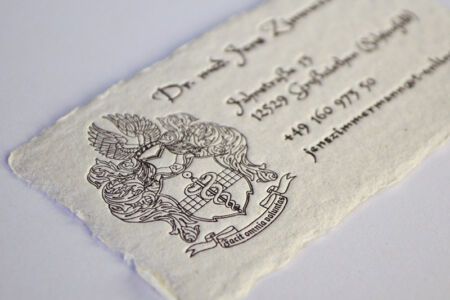 Dr. med. Jens Zimmer
Jahnstraße 13
12529 Großziethen (Schönefeld)
+49 160 973 50
jenszimmermann@t-onlin
facit omnia voluntas